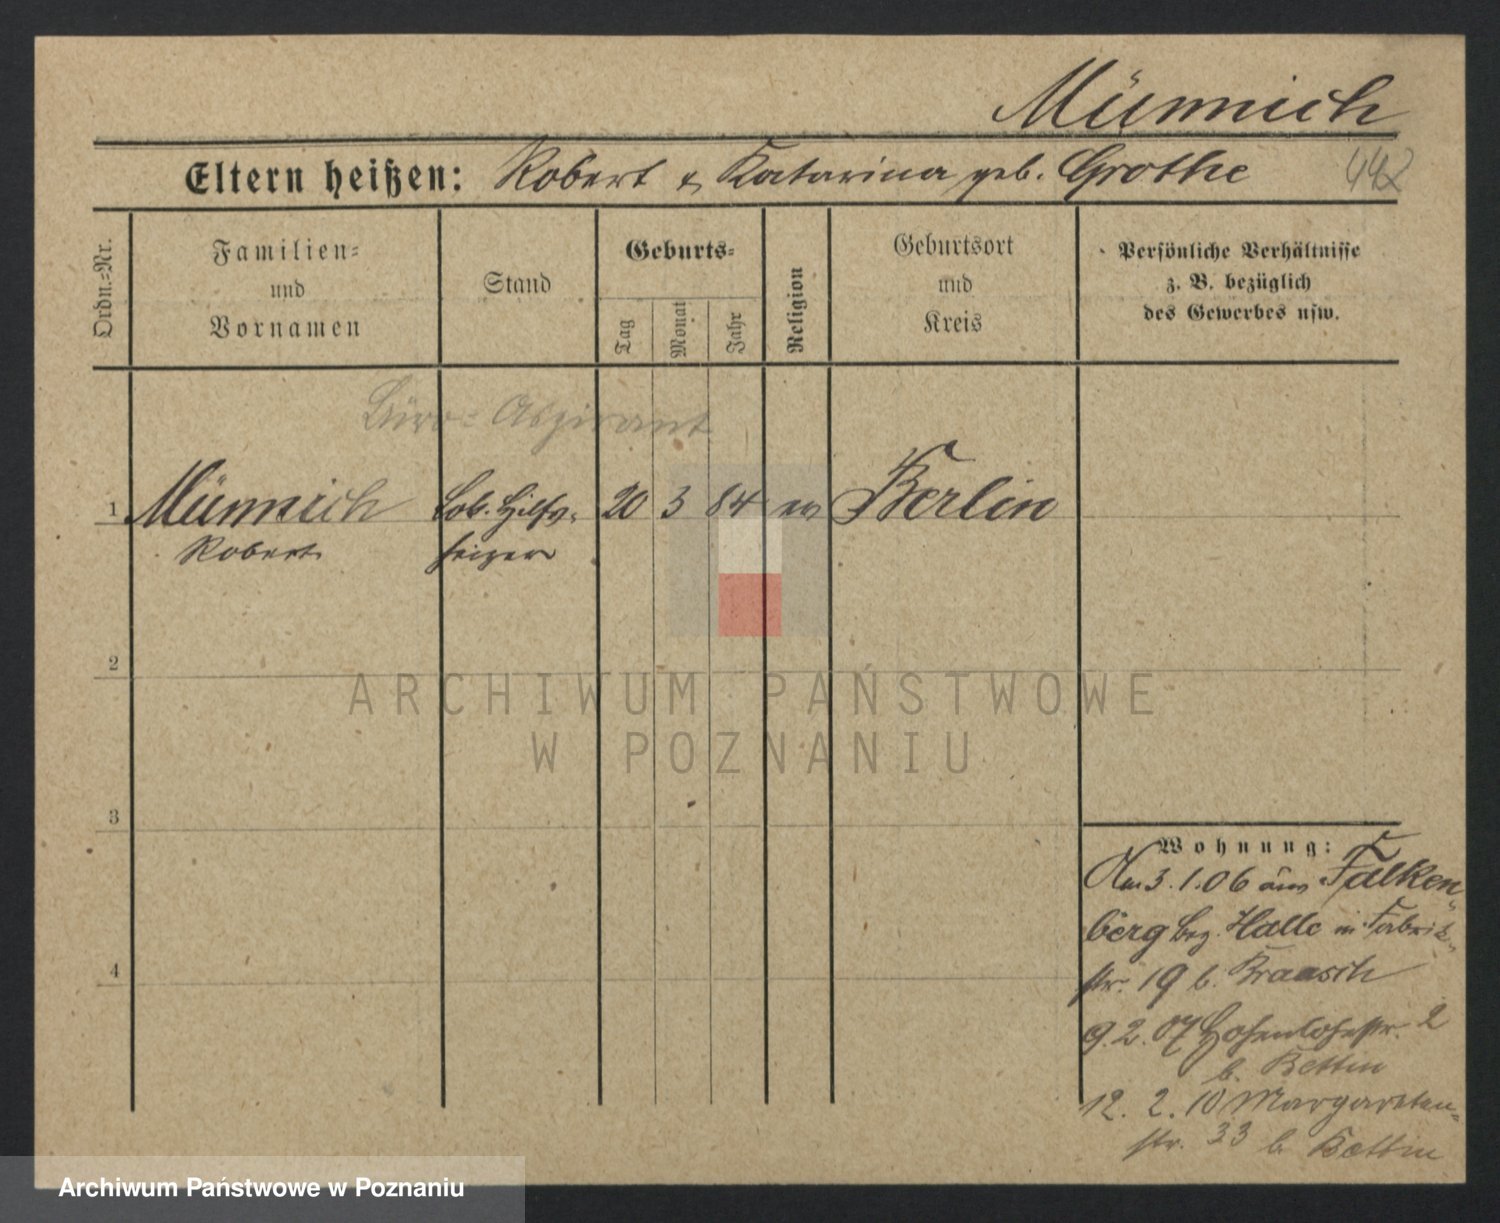 Münnich
Eltern heißen: Robert & Katarina geb. Grothe
442
Ordn.=Nr.
Familien=
und
Vornamen
Stand
Geburts=
Tag
Monat
Jahr
Religion
Geburtsort
und
Kreis
Persönliche Verhältnisse
z. B. bezüglich
des Gewerbes usw.
Büro=Aspirant
1 Münnich Lok. Hilfs= 20 3 84 ev Berlin
Robert heizer
2
3
4
Wohnung:
Am 3.1.06 aus Falken=
berg Bez. Halle n. Fabrik=
str. 19 b. Kraasch
9.2.07 Hohenlohestr. 2
b. Bettin
12. 2. 10 Margareten=
str. 33 b. Bettin
ARCHIWUM PAŃSTWOWE
W POZNANIU
Archiwum Państwowe w Poznaniu